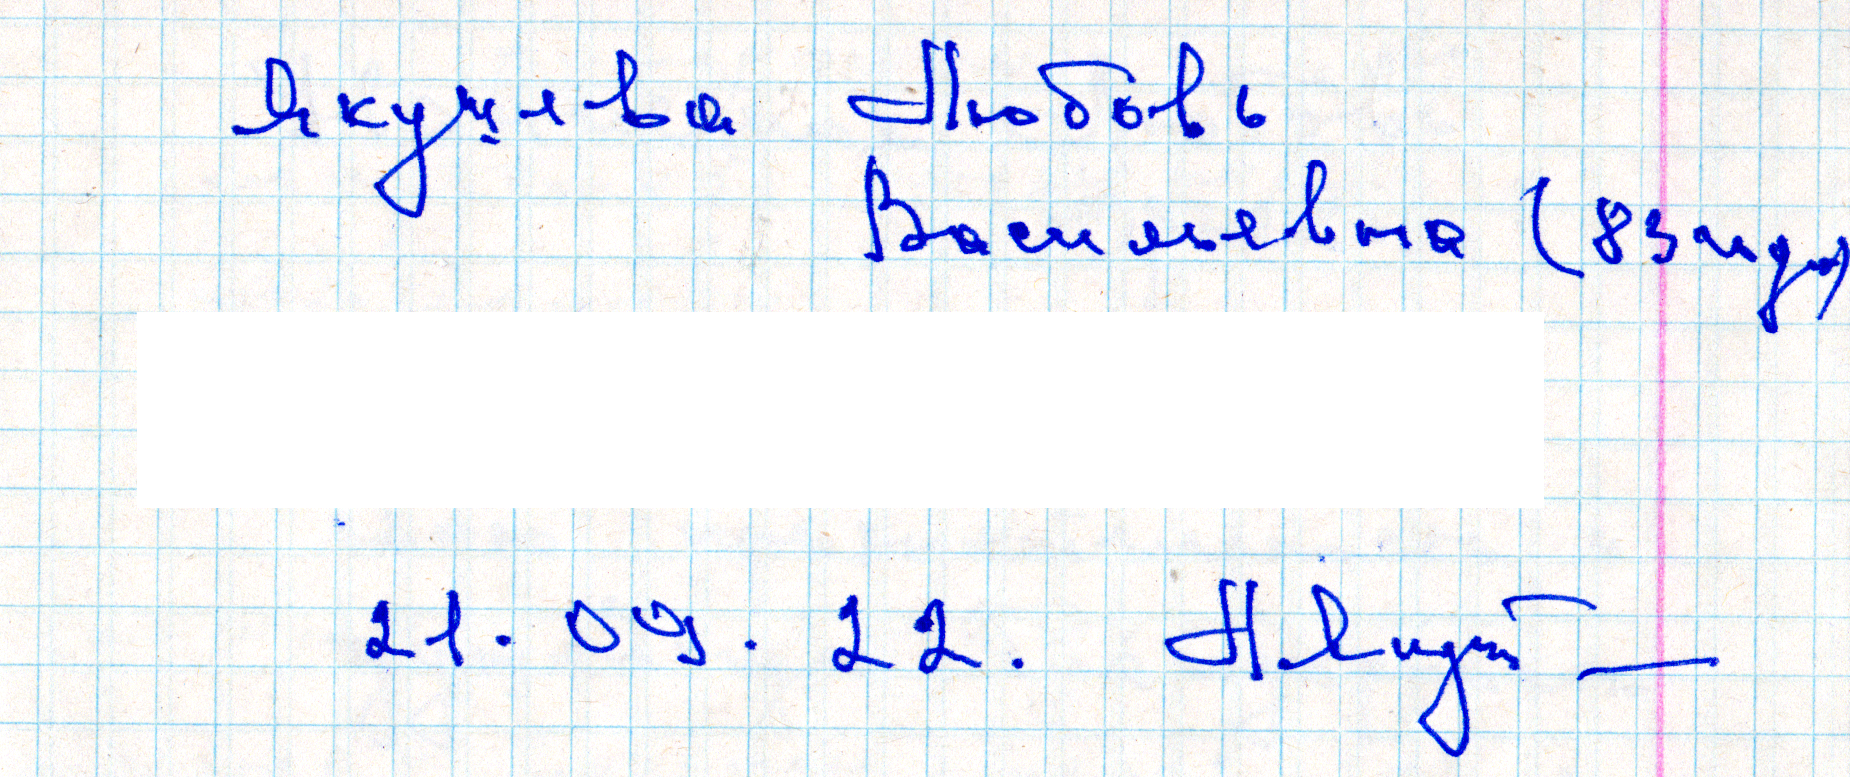 Якушева Любовь
Васильевна (83 года)
21.09.22.